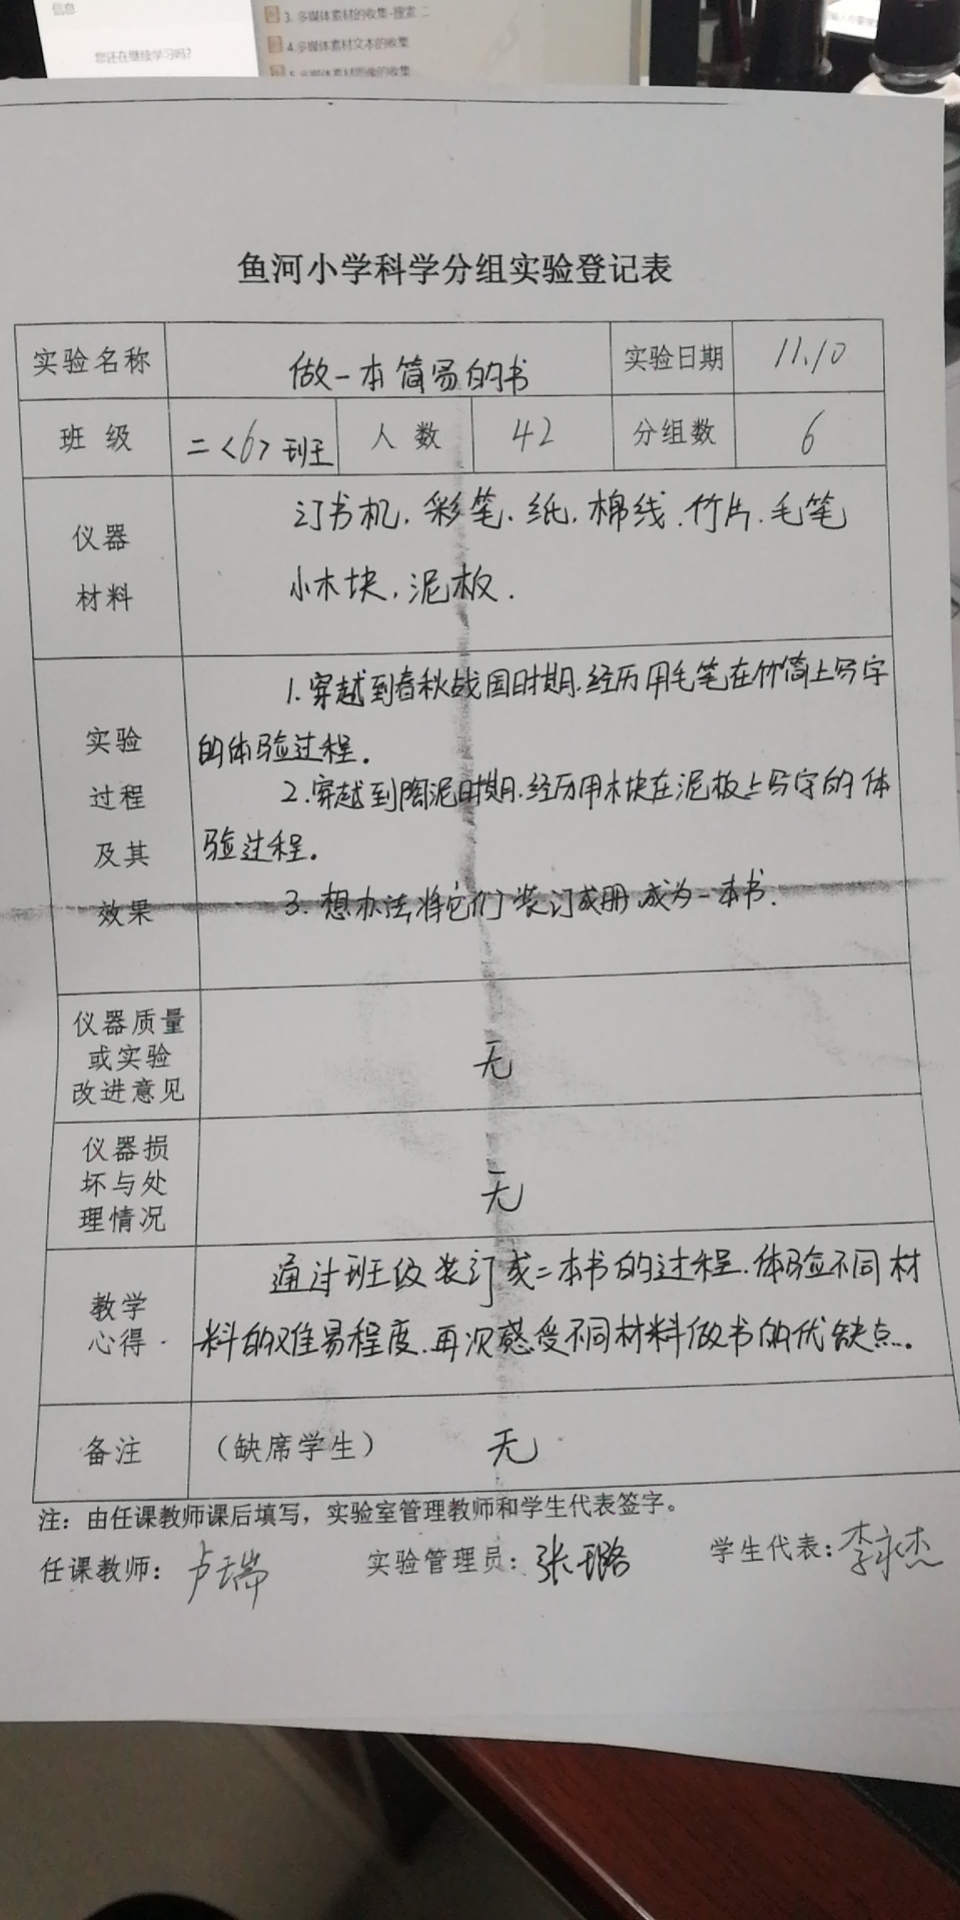 信息
您还在继续学习吗?
3. 多媒体素材的收集-搜索 二
4.多媒体素材文本的收集
5.多媒体素材图像的收集
鱼河小学科学分组实验登记表
实验名称 做一本简易的书 实验日期 11.10
班 级 二<6>班 人 数 42 分组数 6
仪器
材料
订书机.彩笔.纸.棉线.竹片.毛笔
小木块.泥板.
实验
过程
及其
效果
1.穿越到春秋战国时期.经历用毛笔在竹简上写字
的体验过程.
2.穿越到陶泥时期.经历用木块在泥板上写字的体
验过程.
3.想办法将它们装订成册.成为一本书.
仪器质量
或实验
改进意见
无
仪器损
坏与处
理情况
无
教学
心得
通过班级装订成二本书的过程.体验不同材
料的难易程度.再次感受不同材料做书的优缺点.
备注 （缺席学生） 无
注：由任课教师课后填写，实验室管理教师和学生代表签字。
任课教师：卢瑞 实验管理员：张璐 学生代表：李永杰